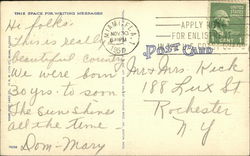 THIS SPACE FOR WRITING MESSAGES
Hi folks.
This is really
beautiful country
We were born
30 yrs. to soon
The sunshines
all the time.
Dom-Mary
MIAMI, FLA.
NOV 30
APPLY NOW
FOR ENLIS
POST CARD
1
Mr + Mrs Keck
188 Lux St
Rochester
N Y